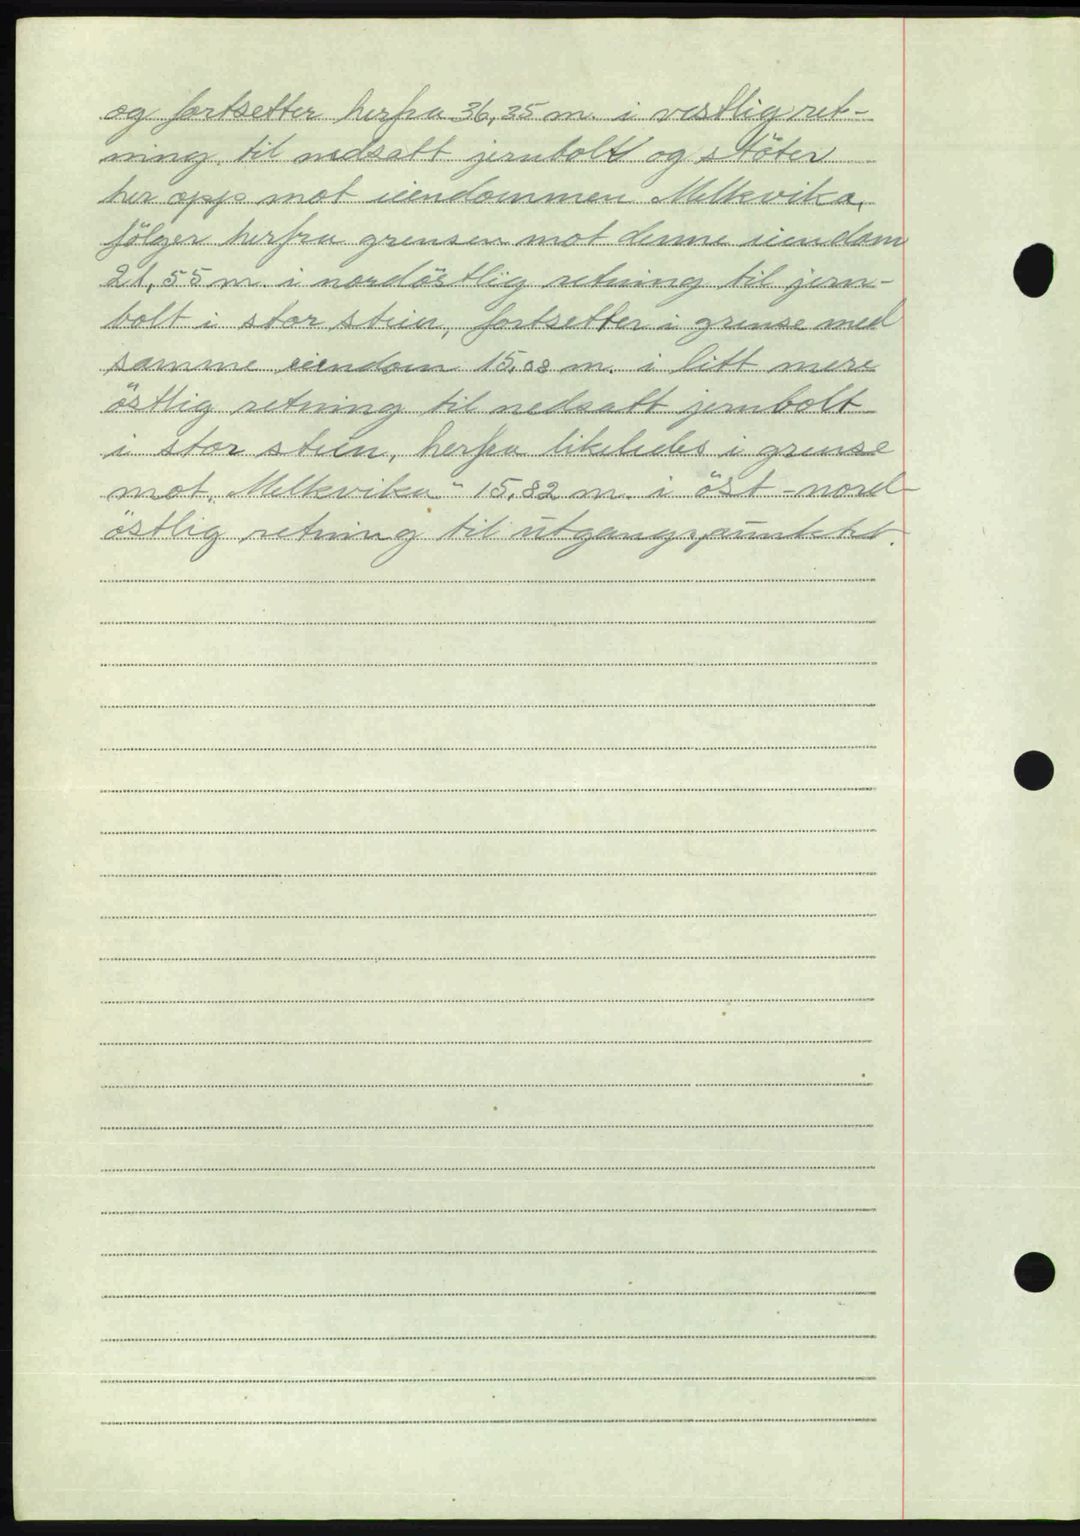 og fortsetter herfra 36,35 m. i vestlig ret-
ning til nedsatt jernbolt og stöter
her opp mot eiendommen Melkvika,
fölger herfra grensen mot denne eiendom
21,55 m. i nordöstlig retning til jern-
bolt i stor stein, fortsetter i grense med
samme eiendom 15,08 m. i litt mere
östlig retning til nedsatt jernbolt
i stor stein, herfra likeledes i grense
mot „Melkvika“ 15,82 m. i öst-nord-
östlig retning til utgangspunktet.